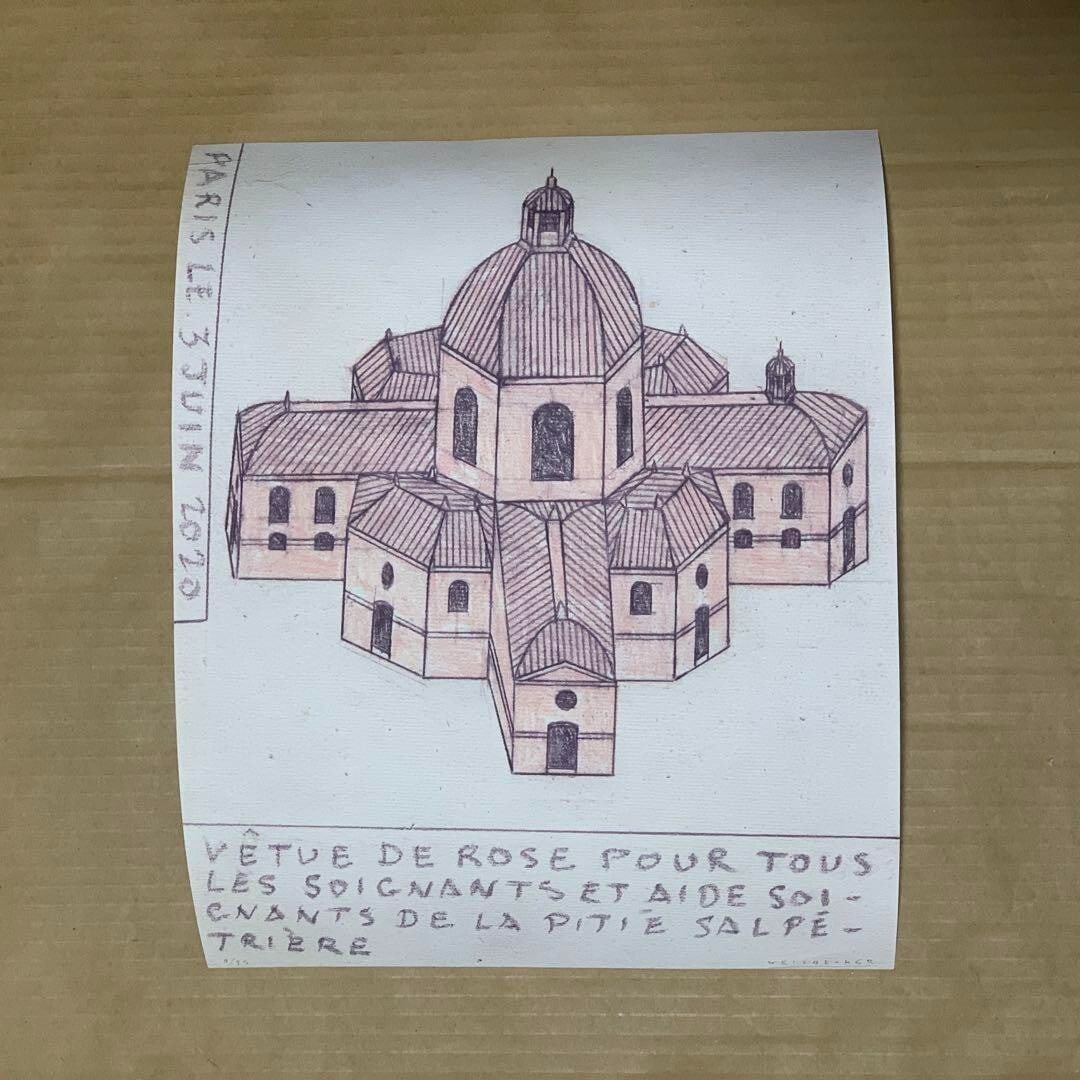 PARIS LE 3 JUIN 2020
VÊTUE DE ROSE POUR TOUS
LES SOIGNANTS ET AIDE SOI-
GNANTS DE LA PITIÉ SALPÊ-
TRIÈRE